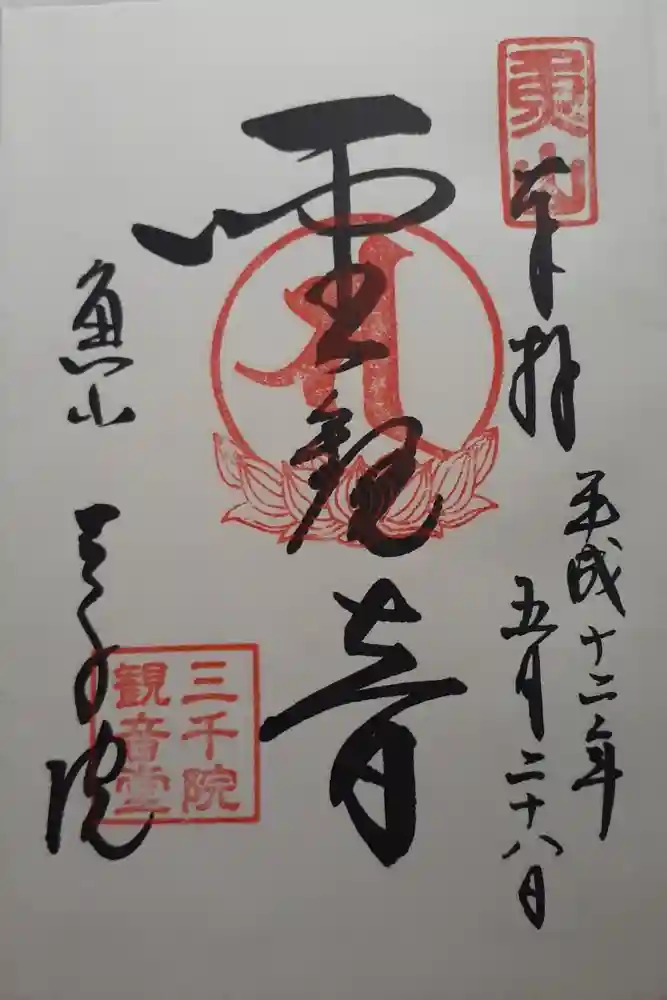 魚山
奉拝
平成十二年
五月二十八日
聖観音
魚山
三千院
三千院
観音堂